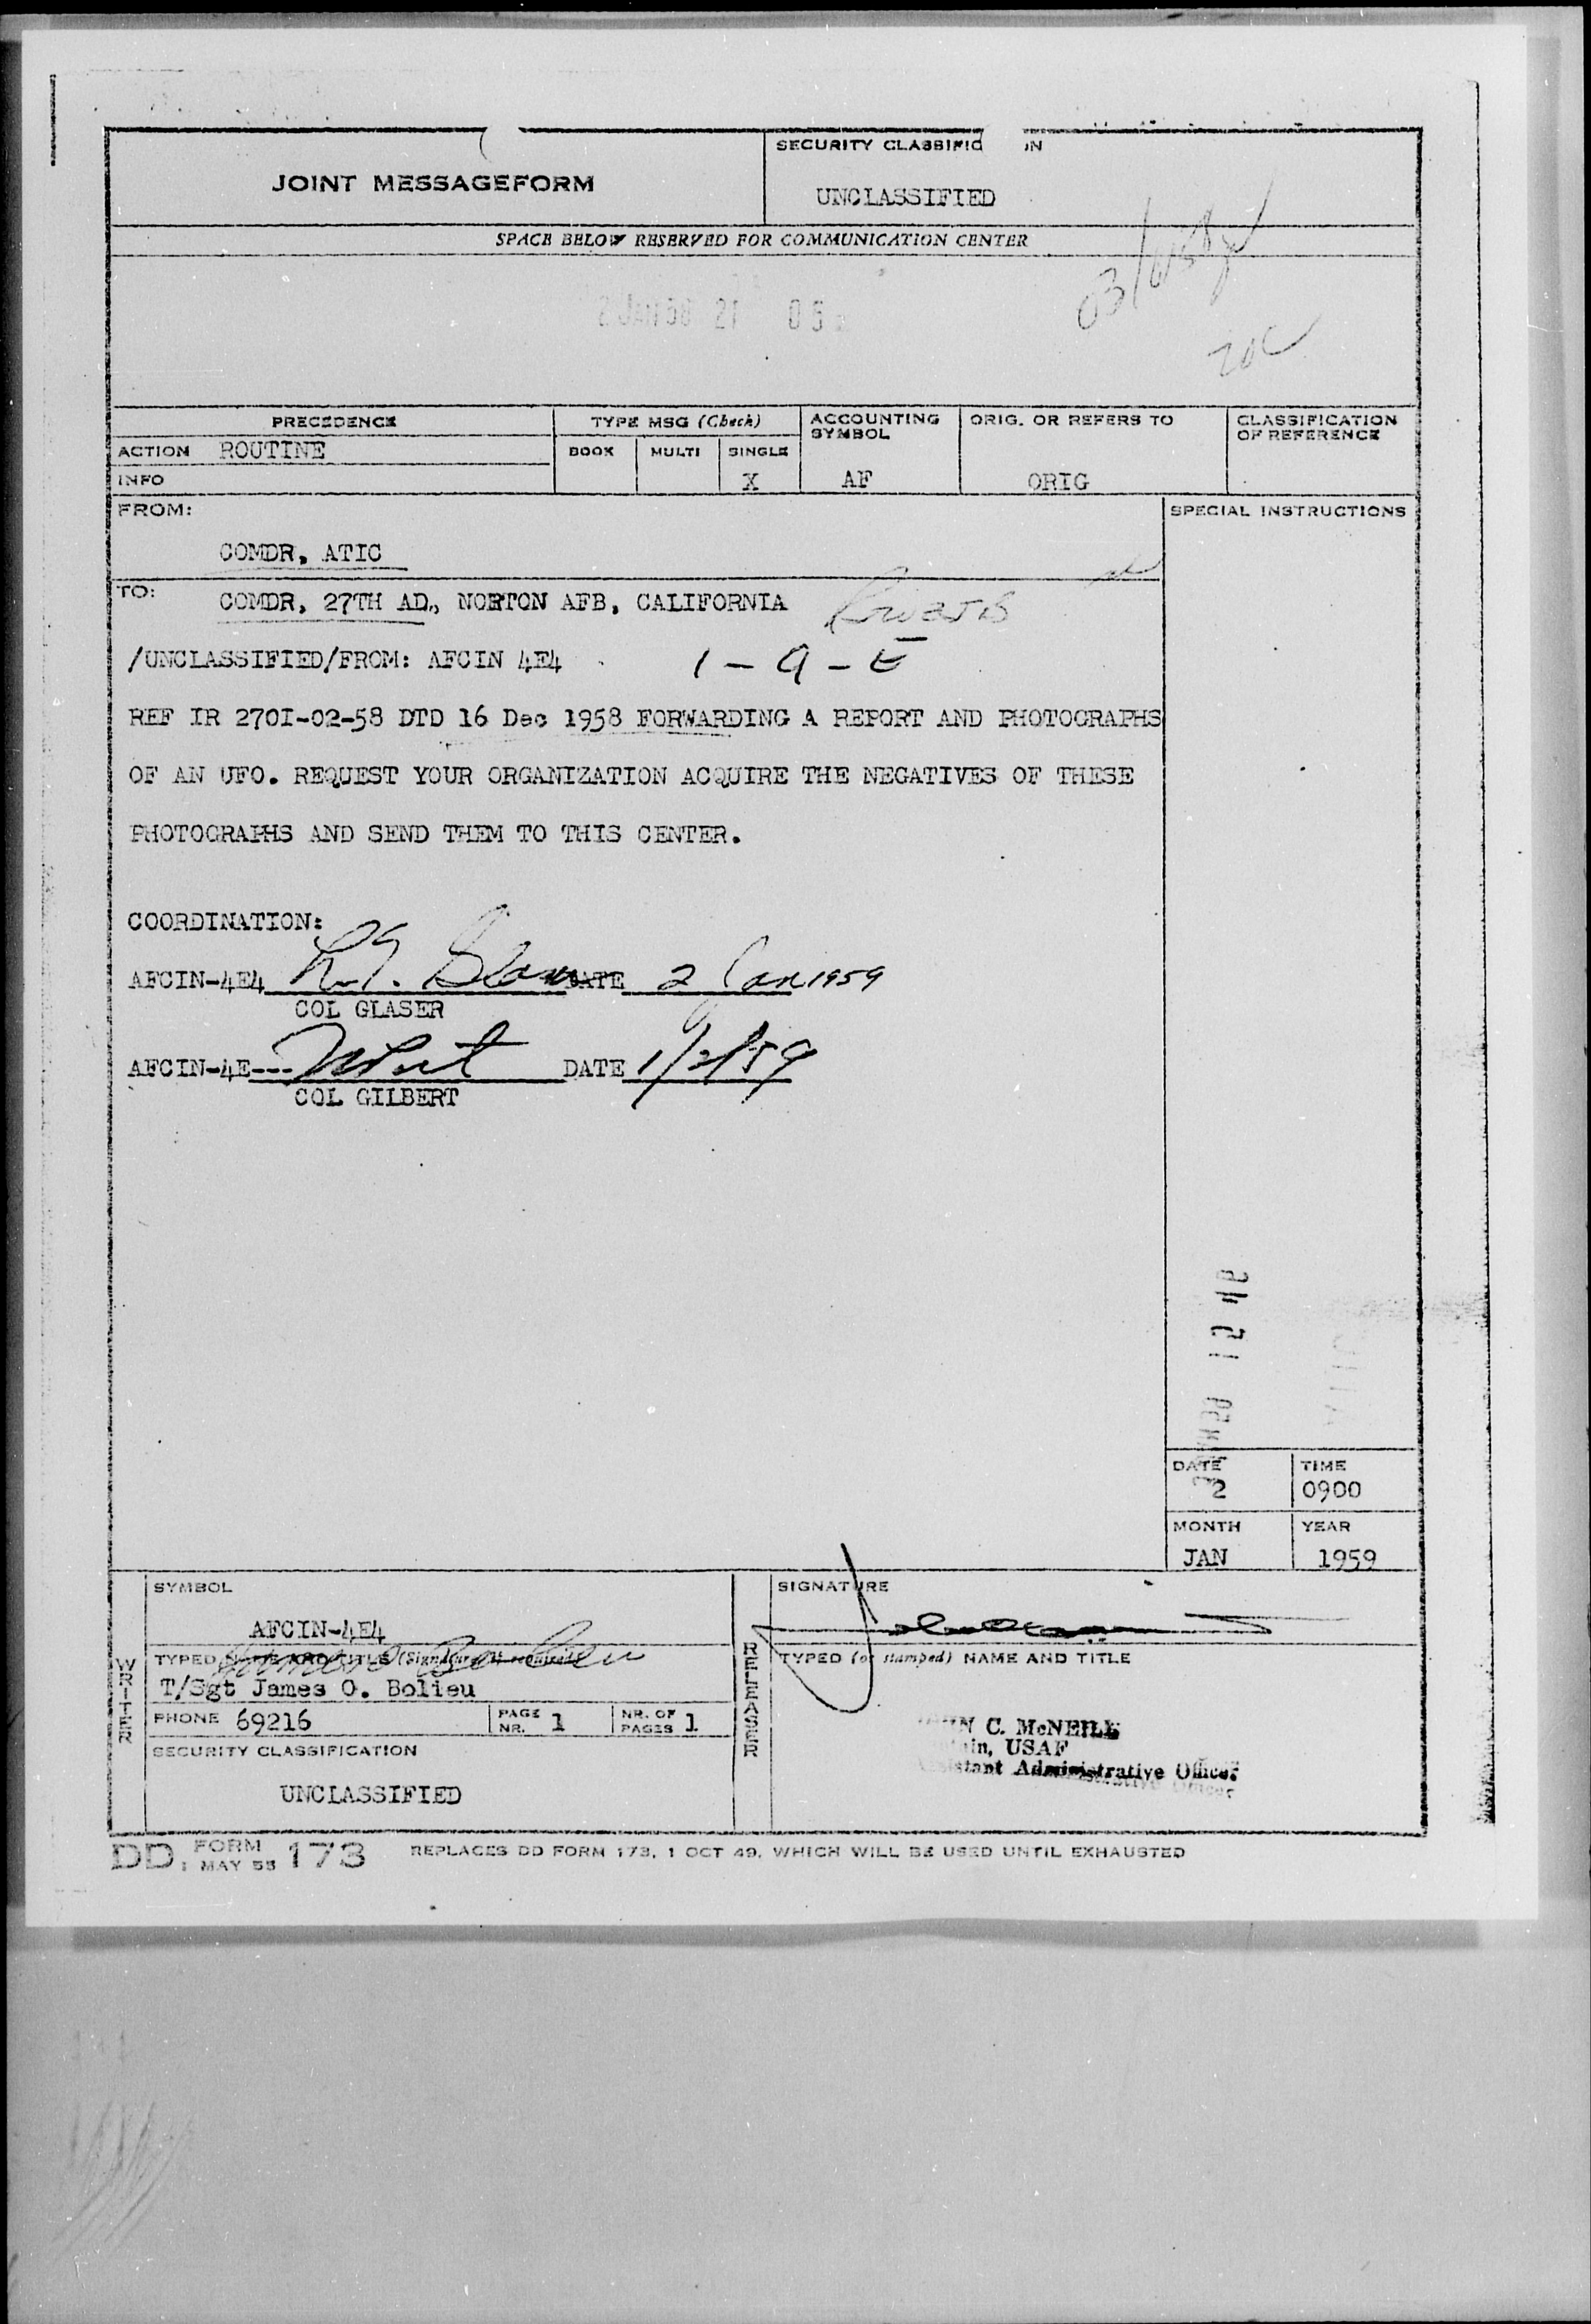 SECURITY CLASSIFIC   IN
JOINT MESSAGEFORM
UNCLASSIFIED
SPACE BELOW RESERVED FOR COMMUNICATION CENTER
PRECEDENCE
TYPE MSG (Check)
ACCOUNTING SYMBOL
ORIG. OR REFERS TO
CLASSIFICATION OF REFERENCE
ACTION ROUTINE
BOOK MULTI SINGLE
INFO
X AF ORIG
FROM:
SPECIAL INSTRUCTIONS
COMDR, ATIC
TO: COMDR, 27TH AD., NORTON AFB, CALIFORNIA
/UNCLASSIFIED/FROM: AFCIN 4E4 1-9-E
REF IR 270I-02-58 DTD 16 Dec 1958 FORWARDING A REPORT AND PHOTOGRAPHS
OF AN UFO. REQUEST YOUR ORGANIZATION ACQUIRE THE NEGATIVES OF THESE
PHOTOGRAPHS AND SEND THEM TO THIS CENTER.
COORDINATION:
AFCIN-4E4 DATE 2 Jan 1959
COL GLASER
AFCIN-4E--- DATE 1/2/59
COL GILBERT
DATE 2 TIME 0900
MONTH JAN YEAR 1959
SYMBOL
AFCIN-4E4
T/Sgt James O. Bolieu
PHONE 69216 PAGE NR. 1 NR. OF PAGES 1
SECURITY CLASSIFICATION
UNCLASSIFIED
WRITER
RELEASER
SIGNATURE
TYPED (or stamped) NAME AND TITLE
C. McNEILL
USAF
Administrative Officer
DD FORM 1 MAY 55 173 REPLACES DD FORM 173, 1 OCT 49, WHICH WILL BE USED UNTIL EXHAUSTED